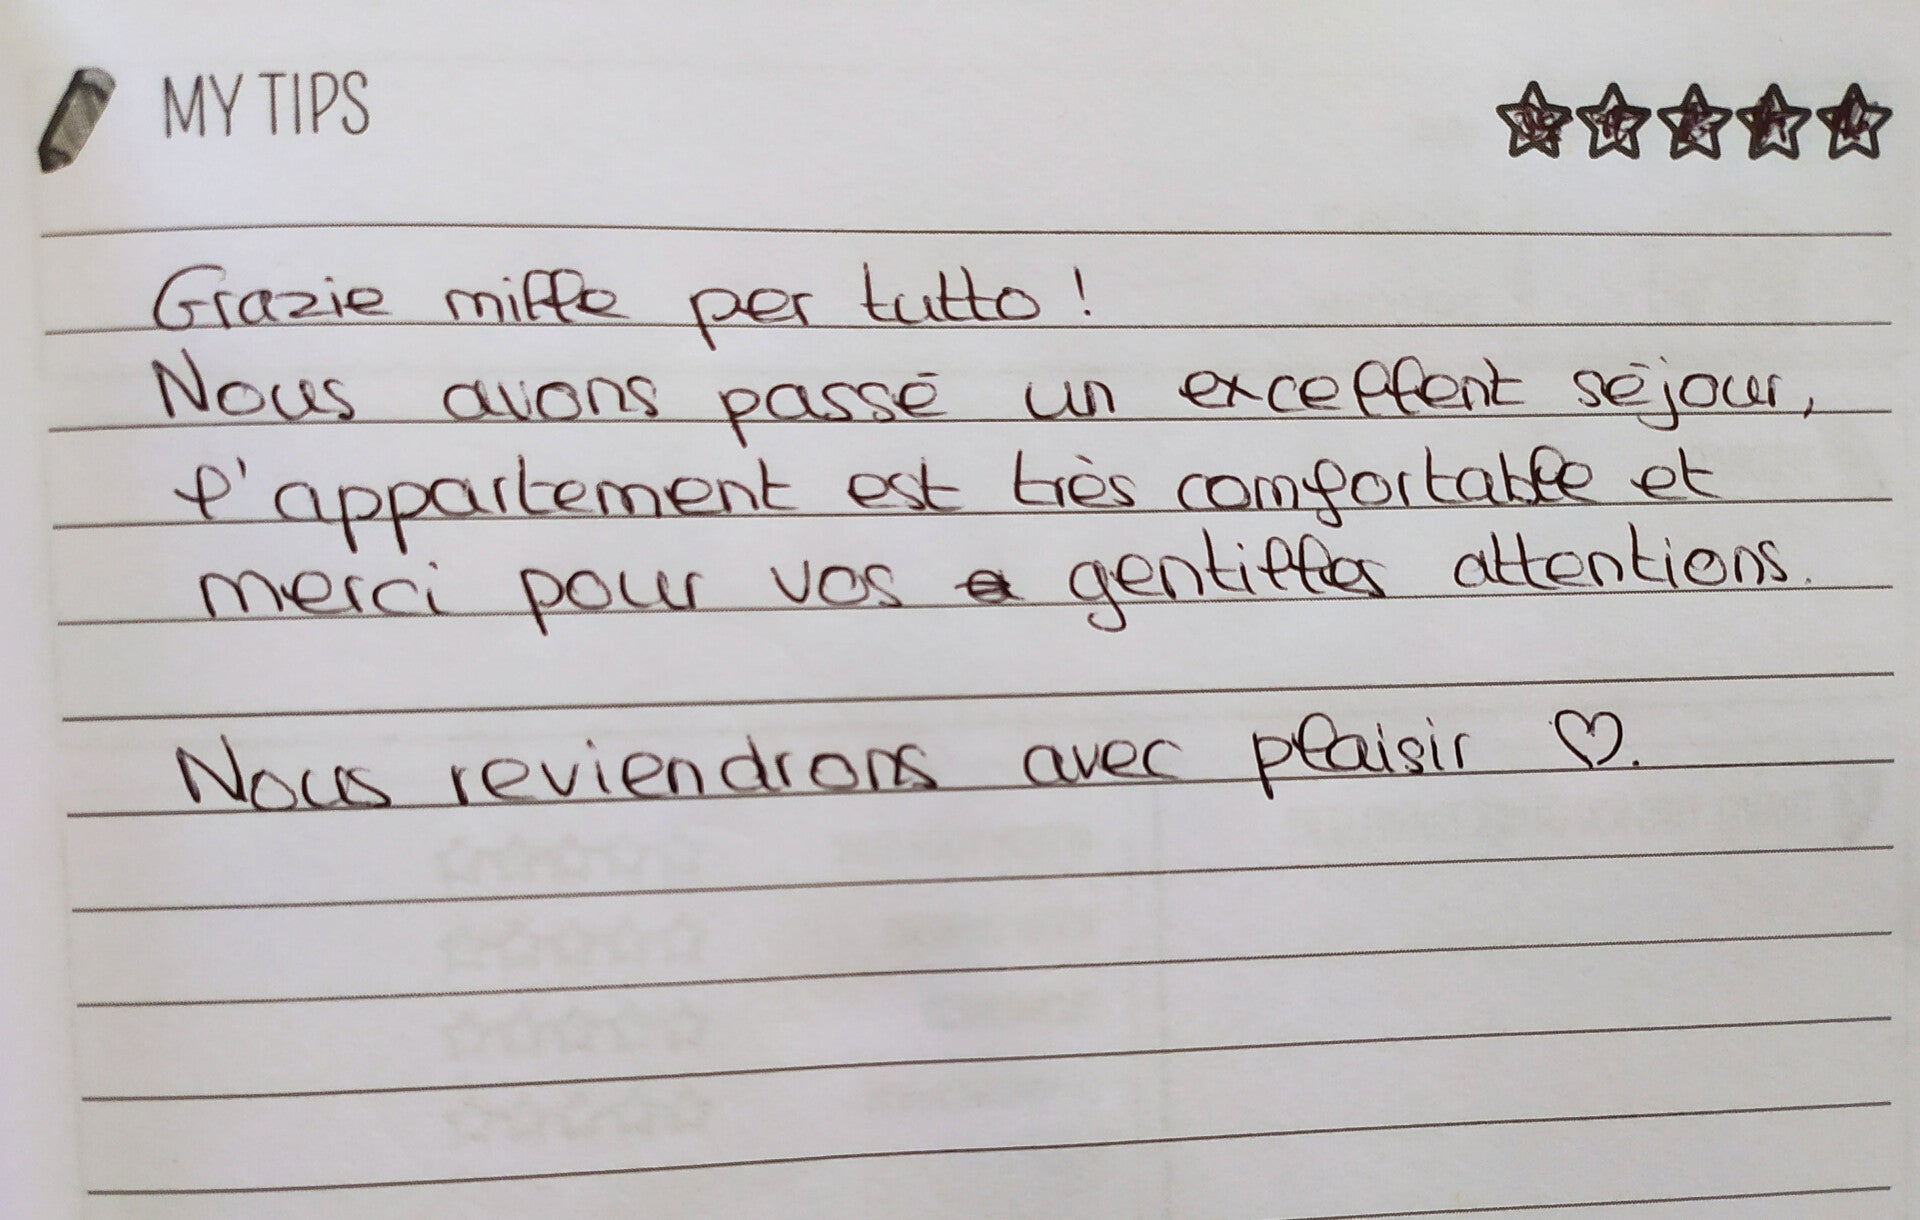 MY TIPS
Grazie mille per tutto !
Nous avons passé un excellent séjour,
l'appartement est très comfortable et
merci pour vos gentilles attentions.
Nous reviendrons avec plaisir ♡.